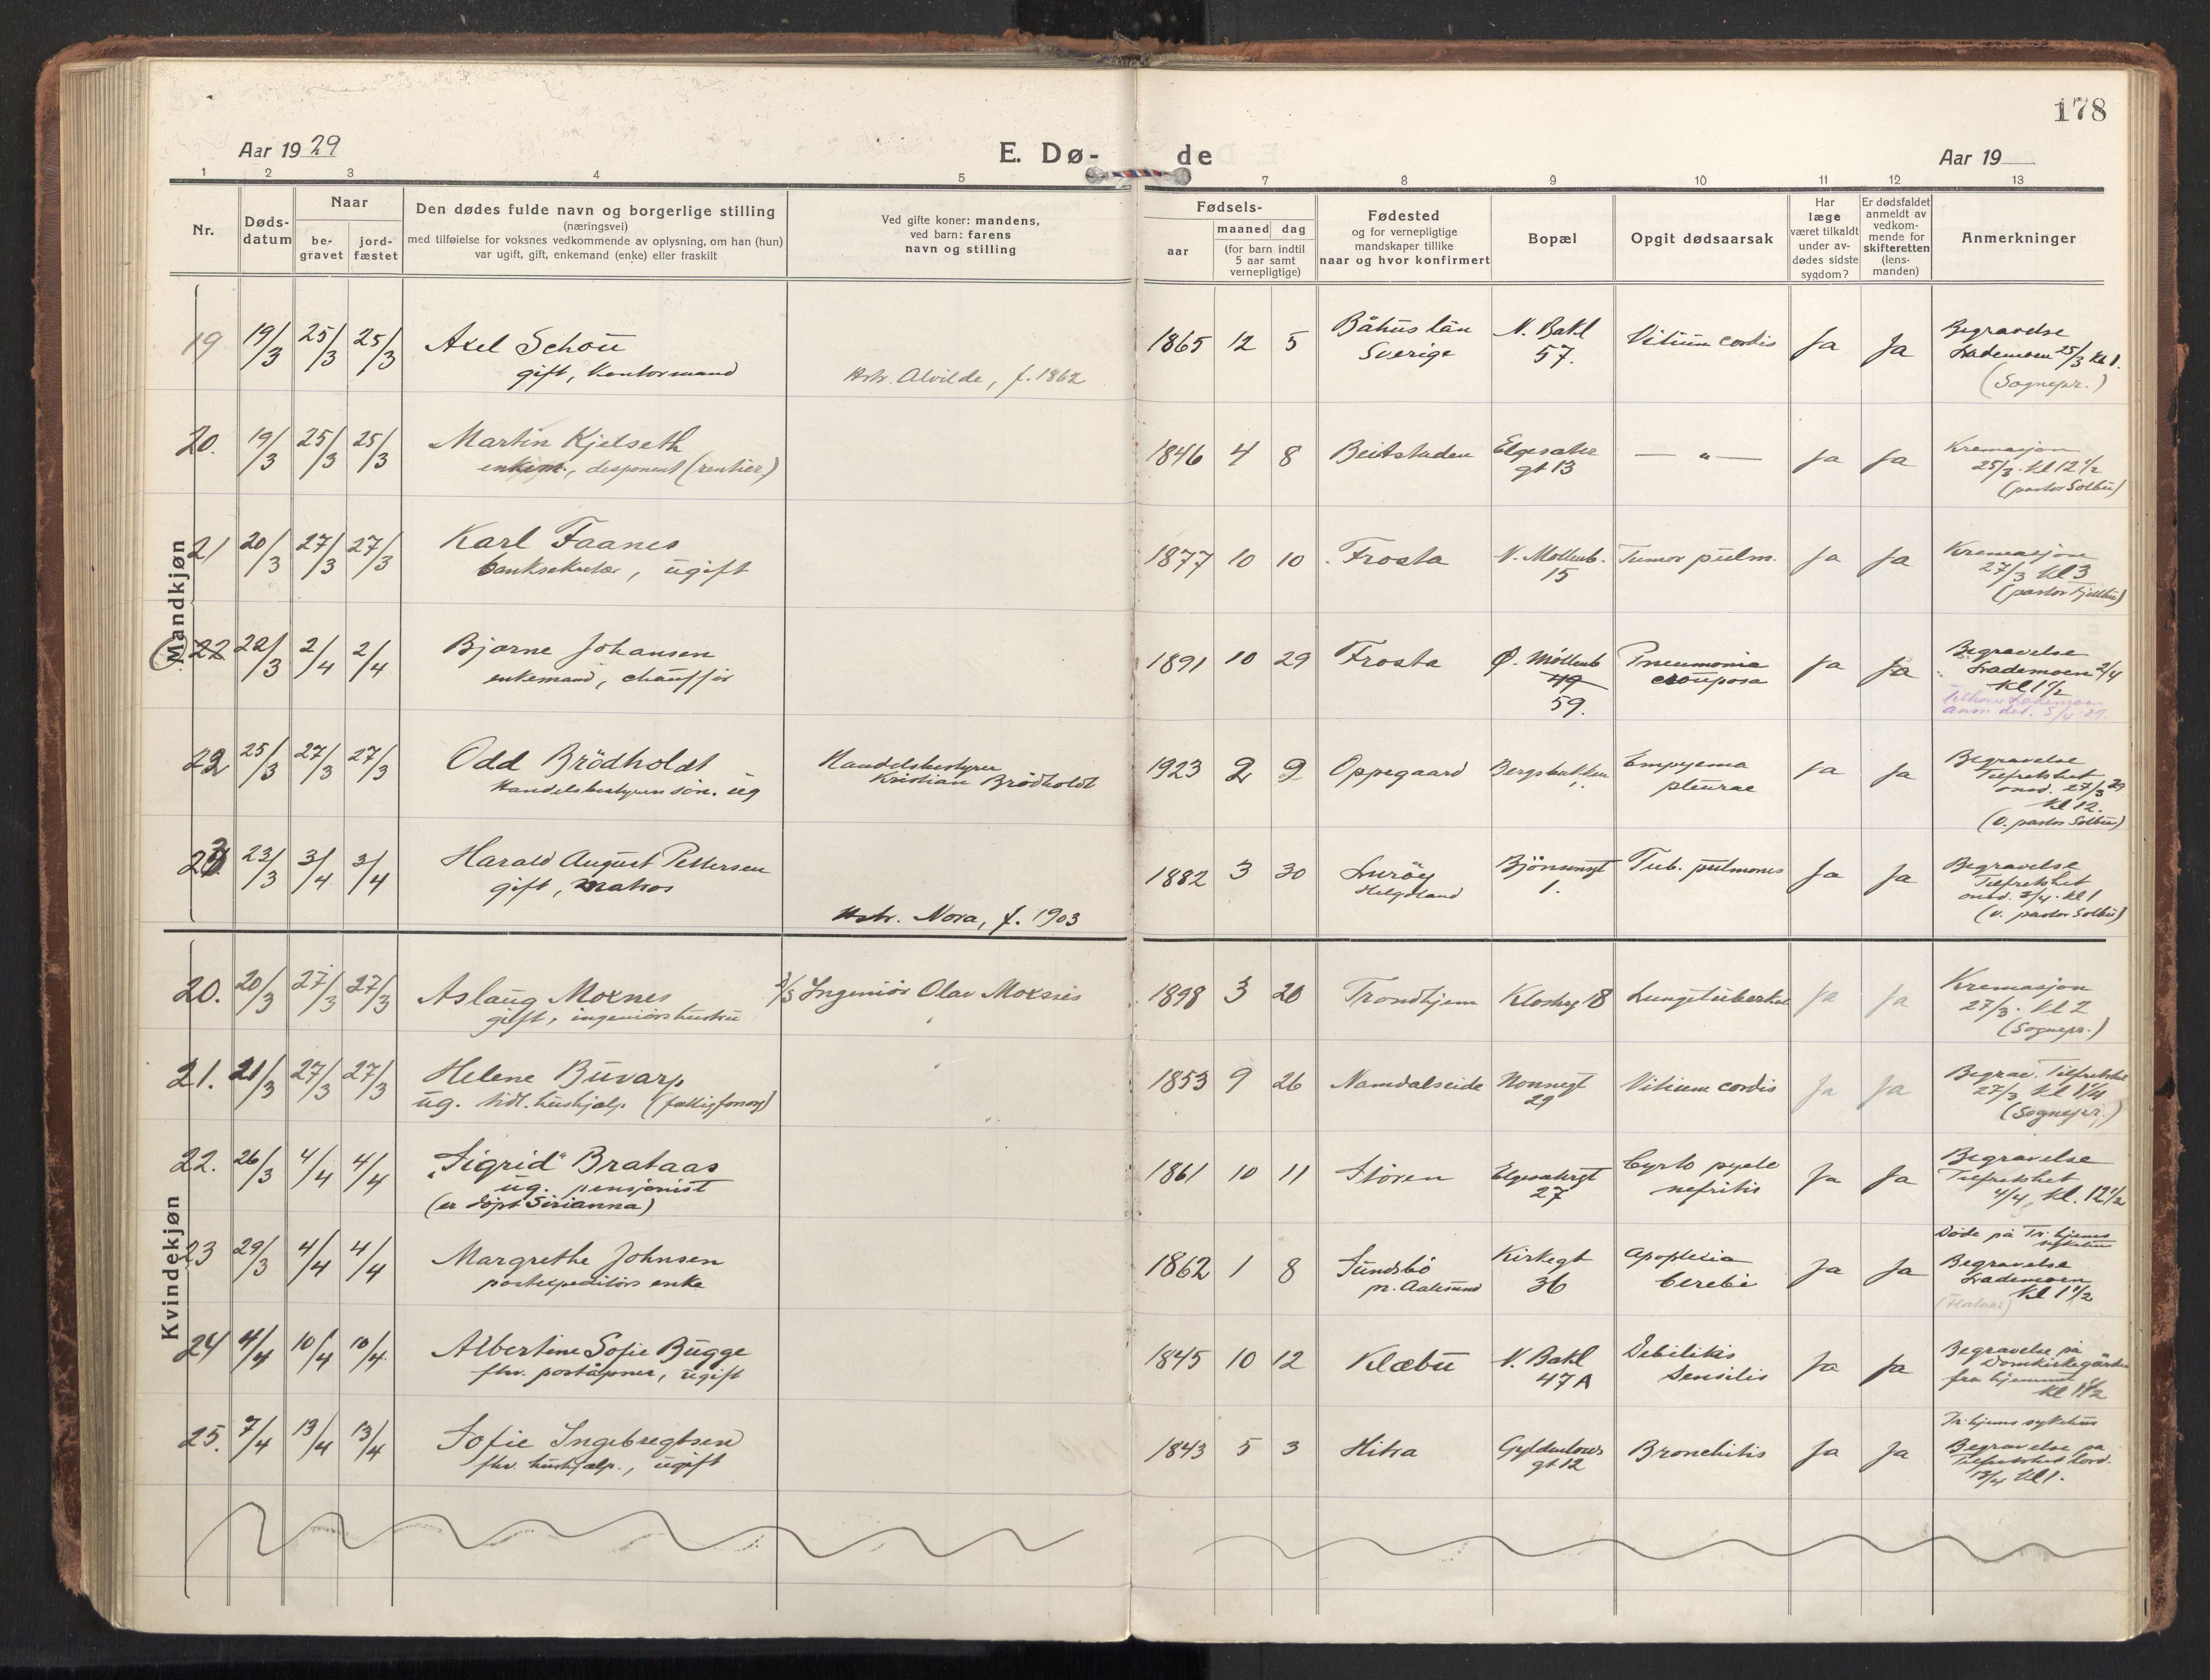 178
Aar 1929
E. Dø-
de
Aar 19
1 2 3 4 5 7 8 9 10 11 12 13
Nr.
Døds-
datum
Naar
be-
gravet
jord-
fæstet
Den dødes fulde navn og borgerlige stilling
(næringsvei)
med tilføielse for voksnes vedkommende av oplysning, om han (hun)
var ugift, gift, enkemand (enke) eller fraskilt
Ved gifte koner: mandens,
ved barn: farens
navn og stilling
Fødsels-
aar
maaned dag
(for barn indtil
5 aar samt
vernepligtige)
Fødested
og for vernepligtige
mandskaper tillike
naar og hvor konfirmert
Bopæl
Opgit dødsaarsak
Har
læge
været tilkaldt
under av-
dødes sidste
sygdom?
Er dødsfaldet
anmeldt av
vedkom-
mende for
skifteretten
(lens-
manden)
Anmerkninger
Mandkjøn
19 19/3 25/3 25/3 Axel Schou
gift, Kontormand
Hstr. Alvilde, f. 1862
1865 12 5 Båhus län
Sverige
N. Bakl
57.
Vitium cordis Ja Ja
Begravelse
Lademoen 25/3 kl 1.
(Sognepr.)
20. 19/3 25/3 25/3 Martin Kjelseth
enkem., disponent (rentier)
1846 4 8 Beitstaden Elgesæter
gt 13
— " — Ja Ja
Kremasjon
25/3 kl 12 1/2
(pastor Solbu)
21 20/3 27/3 27/3 Karl Faanes
banksekretær, ugift
1877 10 10 Frosta V. Mollenb.
15
Tumor pulm. Ja Ja
Kremasjon
27/3 kl 3
(pastor Fjellbu)
22 22/3 2/4 2/4 Bjarne Johansen
enkemand, chauffør
1891 10 29 Frosta Ø. Möllenb
49
59.
Pneumonia
crouposa
Ja Ja
Begravelse
Lademoen 2/4
kl 1 1/2
Tilhører Lademoen
anm. det. 5/4 29.
22 25/3 27/3 27/3 Odd Brödholdt
Handelsbestyrers sön. ug
Handelsbestyrer
Kristian Brödholdt
1923 2 9 Oppegaard Bergsbakken
Empyema
pleurae
Ja Ja
Begravelse
Tilfredshet
onsd. 27/3 29
kl 12.
(V. pastor Solbu)
23 23/3 3/4 3/4 Harald August Pettersen
gift, matros
Hstr. Nora, f. 1903
1882 3 30 Luröy
Helgeland
Bjönsungt
1.
Tub. pulmones Ja Ja
Begravelse
Tilfredshet
onsd. 3/4 kl 1
(v. pastor Solbu)
Kvindekjøn
20. 20/3 27/3 27/3 Aslaug Moxnes
gift, ingeniörshustru
Ingeniör Olav Moxnes
1898 3 20 Trondhjem Klosterg 18 Lungetuberkel Ja Ja
Kremasjon
27/3 kl 2
(Sognepr.)
21. 21/3 27/3 27/3 Helene Buvarp
ug. tidl. hushjelp (fattigforsorg)
1853 9 26 Namdalseide Nonnegt
29
Vitium cordis Ja Ja
Begrav. Tilfredshet
27/3 kl 1 1/4
(Sognepr.)
22. 26/3 4/4 4/4 "Sigrid" Brataas
ug. pensjonist
(er döpt Sirianna)
1861 10 11 Stören Elgesætergt
27
Cysto pyelo
nefritis
Ja Ja
Begravelse
Tilfredshet
4/4 kl. 12 1/2
23 29/3 4/4 4/4 Margrethe Johnsen
postexpeditörs enke
1862 1 8 Sundsbö
pr. Aalesund
Kirkegt
36
Apoplexia
cerebri
Ja Ja
Döde på Tr.hjems
sykehus
Begravelse
Lademoen
kl 1 1/2
24 4/4 10/4 10/4 Albertine Sofie Bugge
fhv. poståpner, ugift
1845 10 12 Klæbu V. Bakl
47A
Debilitas
Senilis
Ja Ja
Begravelse på
Domkirkegården
fra hjemmet
kl 1 1/2
25. 7/4 13/4 13/4 Sofie Ingebregtsen
fhv. hushjelp., ugift
1843 5 3 Hitra Gyldenlöves
gt 12
Bronchitis Ja Ja
Tr.hjems sykehus
Begravelse på
Tilfredshet lörd.
13/4 kl 1.